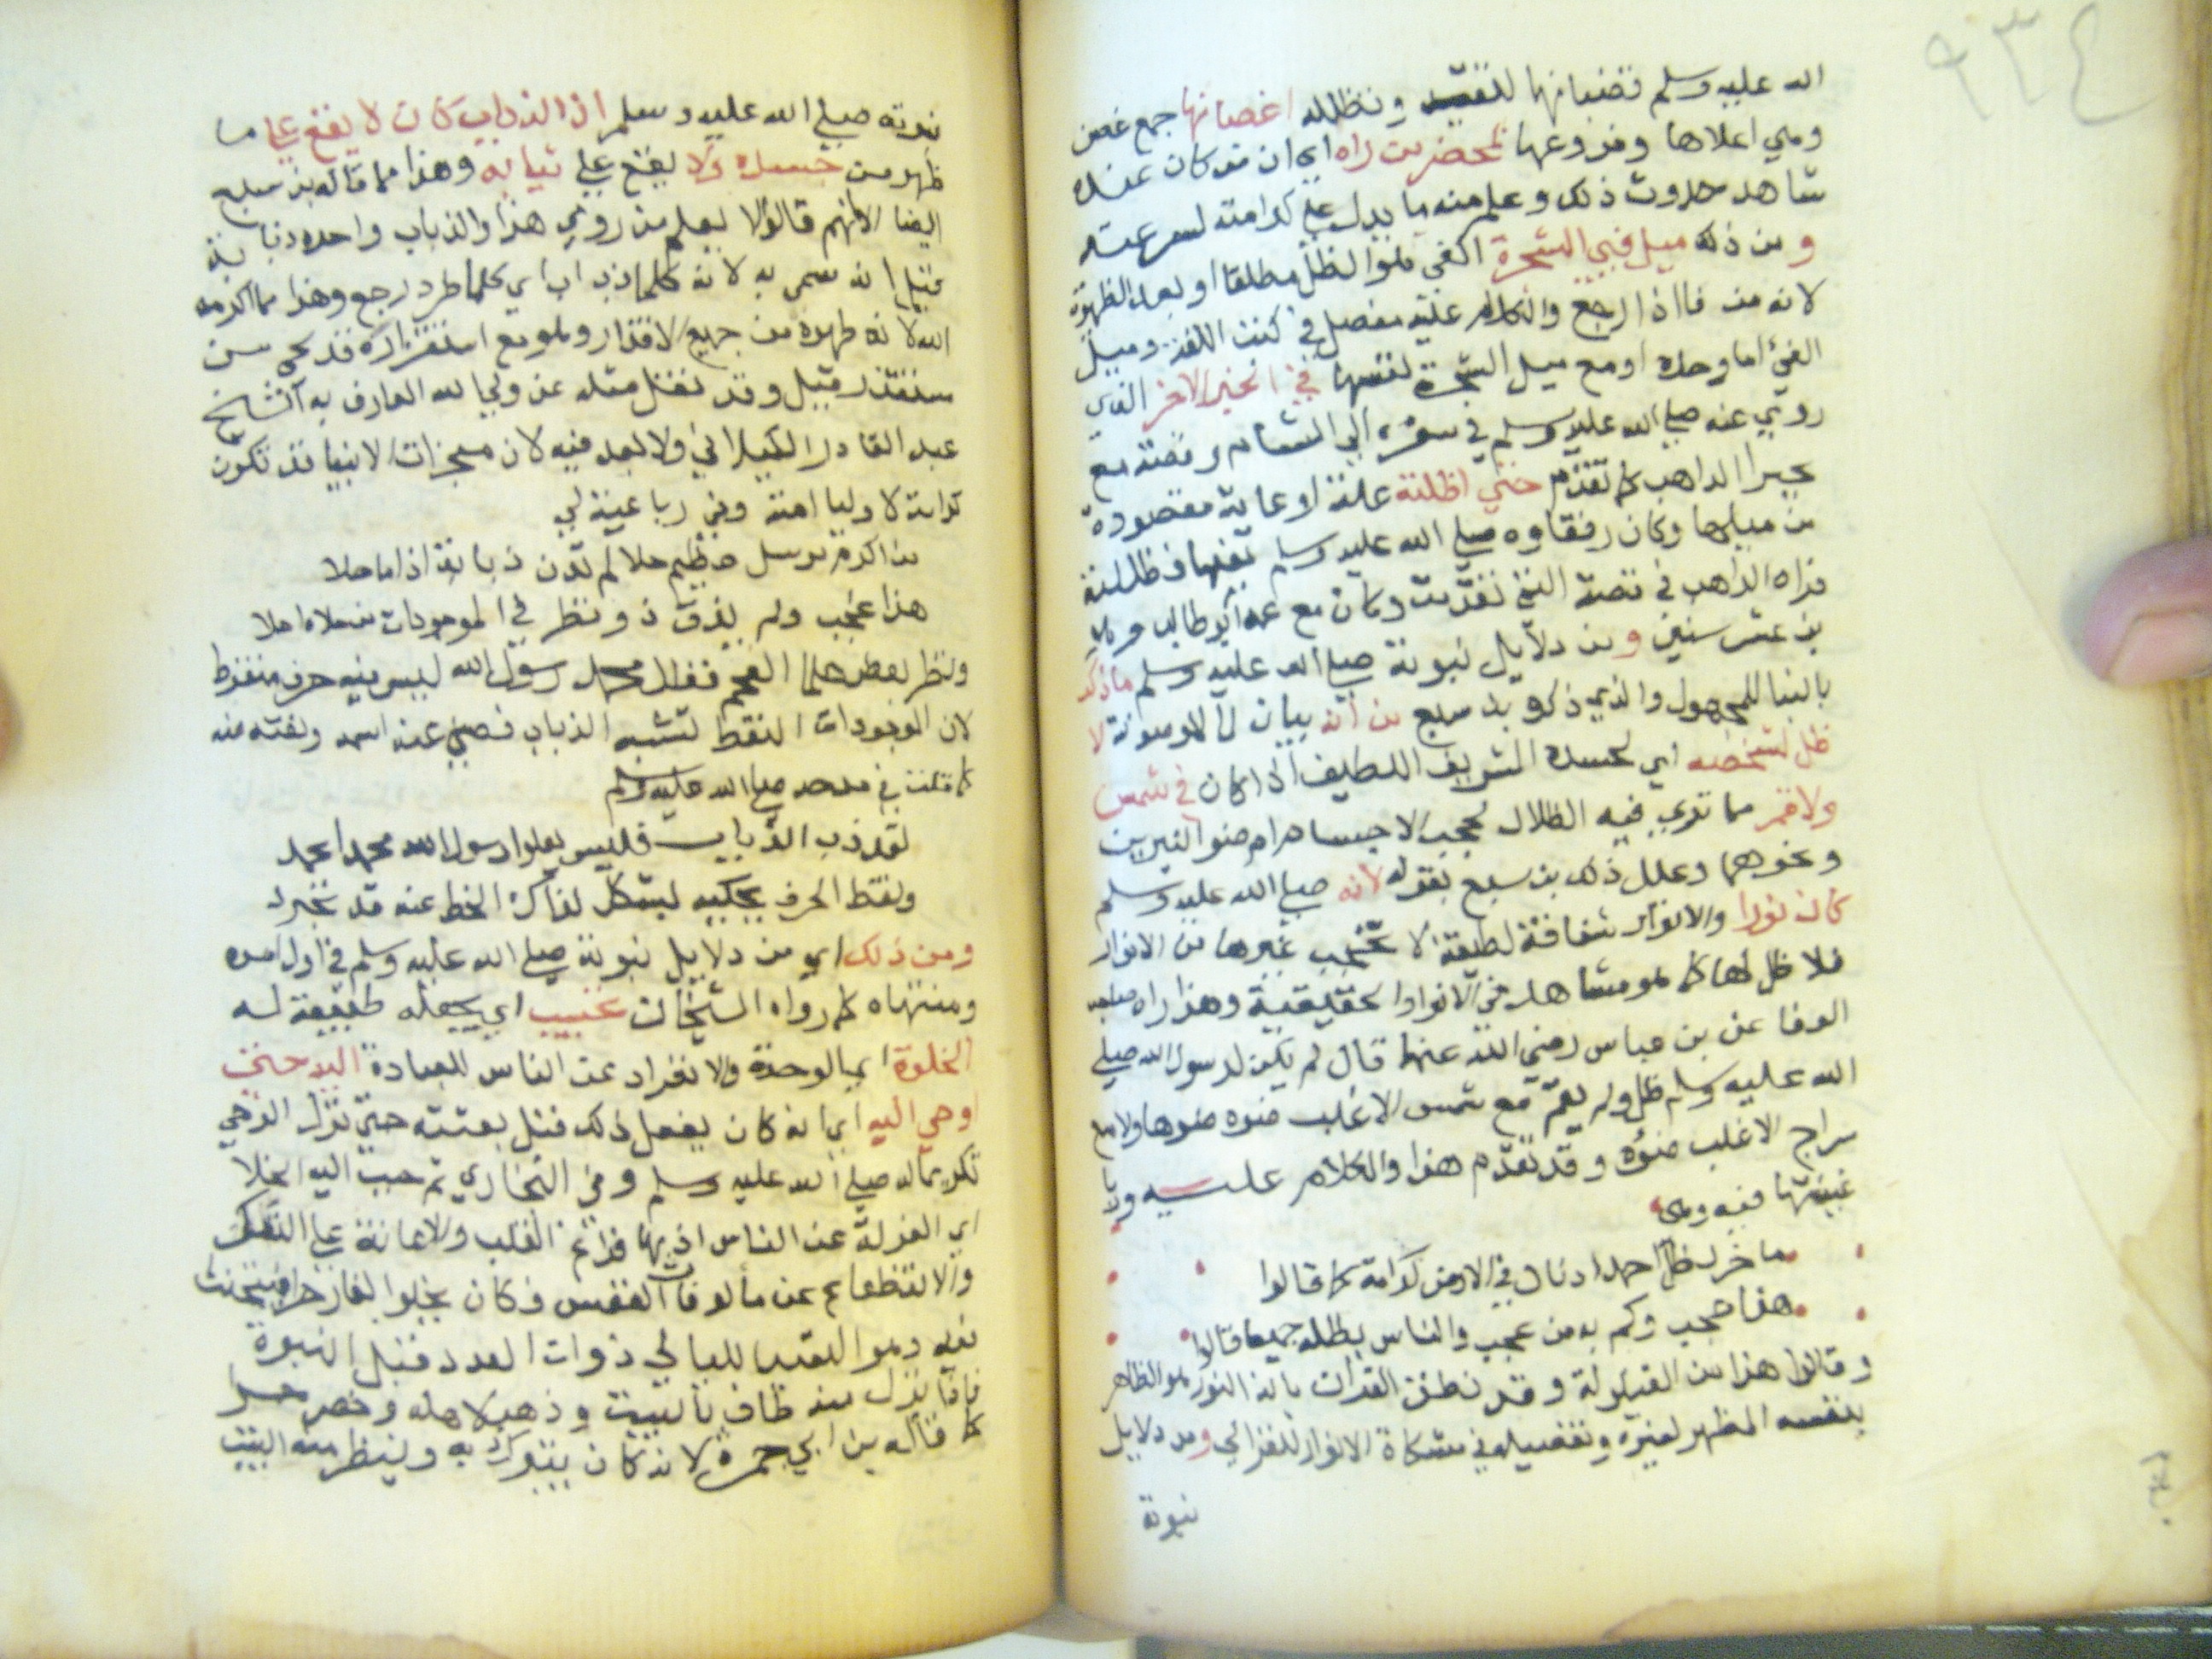 ٩٣٤
الله عليه وسلم قضبانها لتقيه وتظلله اغصانها جمع غصن
وهي اعلاها وفروعها لمحضر من راه اي ان من كان عنده
شاهد حدوث ذلك وعلم منه ما يدل علي كرامته لسرعته
ومن ذلك ميل فيي الشجرة اكفي هو الظل مطلقا او بعد الظهيرة
لانه من فااذا رجع والكلام عليه مفصل في كتب اللغة وميل
الفيء اما وحده او مع ميل الشجرة نفسها في الخبر الاخر الذي
روي عنه صلي الله عليه وسلم في سفره الي الشام وقصته مع
بحيرا الراهب كما تقدم حتي اظلته علة او غاية مقصودة
من ميلها وكان رفقاوه صلي الله عليه وسلم تفيها فظللته
فراه الراهب في قصة التي تقدمت وكان مع عمه ابو طالب وهو
بن عشر سنين ومن دلايل نبوته صلي الله عليه وسلم ماذكر
بالبنا للمجهول والذي ذكره بن سبع من انه بيان لما الموصولة لا
ظل لشخصه اي لجسده الشريف اللطيف اذا كان في شمس
ولا قمر مما تري فيه الظلال لحجب الاجسام ضو النيرين
ونحوهما وعلل ذلك بن سبع بقوله لانه صلي الله عليه وسلم
كان نورا والانوار شفافة لطيفة لا تحجب غيرها من الانوار
فلا ظل لها كما هو مشاهد في الانوار الحقيقية وهذا راه صاحب
الوفا عن بن عباس رضي الله عنهما قال لم يكن لرسول الله صلي
الله عليه وسلم ظل ولم يقم مع شمس الا غلب ضوه ضوها ولا مع
سراج الا غلب ضوءه وقد تقدم هذا والكلام عليه ورباعيتها فيه وهي
ما جر لظل احمد اذيال في الارض كرامة كما قالوا
هذا عجب وكم به من عجب والناس بظله جميعا قالوا
وقالوا هذا من القيلولة وقد نطق القران بانه النور هو الظاهر
بنفسه المظهر لغيره وتفصيله في مشكاة الانوار للغزالي ومن دلايل
نبوته
نبوته صلي الله عليه وسلم ان الذباب كان لا يقع علي ما
ظهر من جسده ولا يقع علي ثيابه وهذا مما قاله بن سبع
ايضا الا انهم قالوا لا يعلم من روي هذا والذباب واحده ذبابة
قيل انه سمي به لانه كلما ذب اب اي كلما طرد رجع وهذا مما اكرمه
الله لانه طهره من جميع الاقذار وهو مع استقذاره قد يجي من
مستقذر قيل وقد نقل مثله عن ولي الله العارف به الشيخ
عبد القادر الكيلاني ولا بعد فيه لان معجزات الانبيا قد تكون
كرامة لاوليا امته وفي رباعية لي
من اكرم مرسل عظيم حلا لم تدن ذبابة اذا ما حلا
هذا عجب ولم يذق ذو نظر في الموجودات من حلاه احلا
ونظر بعض علما العجم فقال محمد رسول الله ليس فيه حرف منقوط
لان الموجودات النقط تشبه الذباب فصين عنه اسمه ونعته منه
كما قلت في مدحه صلي الله عليه وسلم
لقد ذب الذباب فليس يعلو رسول الله محمدا محمد
ونقط الحرف يحكيه بشكل لذاك الخط عنه قد تجرد
ومن ذلك اي من دلايل نبوته صلي الله عليه وسلم في اول امره
ومنتهاه كما رواه الشيخان تحبيب اي يجعله طبيعة له
الخلوة اي الوحدة والانفراد عن الناس للعبادة اليه حتي
اوحي اليه اي انه كان يفعل ذلك قبل بعثته حتي نزل الوحي
تكريما له صلي الله عليه وسلم وفي البخاري ثم حبب اليه الخلا
اي العزلة عن الناس اذ بها فراغ القلب والاعانة علي التفكر
والانقطاع عن مألوفات النفس فكان يخلوا بغار حرا فيتحنث
فيه وهو التعبد الليالي ذوات العدد قبل النبوة
فاذا نزل منه طاف بالبيت وذهب لاهله وخص حرا
كما قاله بن ابي جمرة لانه كان يتبرك به وينظر منه البيت